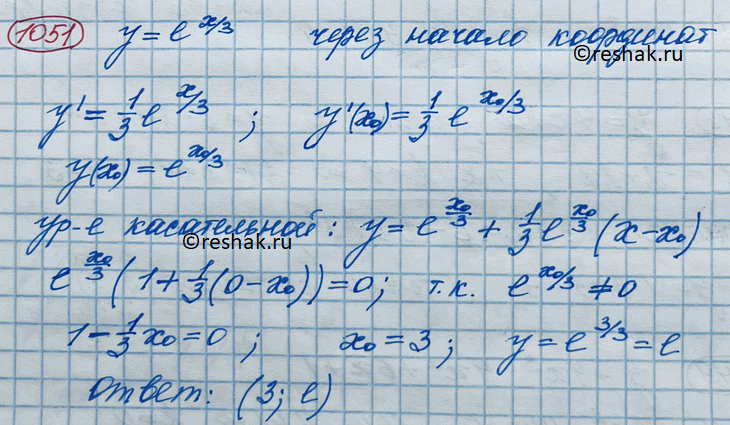 1051 y = e^{x/3} через начало координат
©reshak.ru
y' = \frac{1}{3} e^{x/3} ; y'(x₀) = \frac{1}{3} e^{x₀/3}
y(x₀) = e^{x₀/3}
ур-е касательной: y = e^{\frac{x₀}{3}} + \frac{1}{3} e^{\frac{x₀}{3}} (x - x₀)
©reshak.ru
e^{\frac{x₀}{3}} (1 + \frac{1}{3} (0 - x₀)) = 0; т.к. e^{x₀/3} ≠ 0
1 - \frac{1}{3} x₀ = 0 ; x₀ = 3 ; y = e^{3/3} = e
Ответ: (3; e)
©reshak.ru